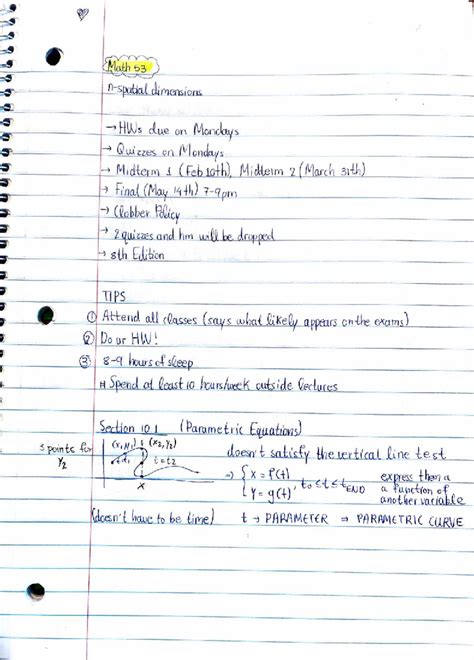 Math 53
n-spatial dimensions
→ HWs due on Mondays
→ Quizzes on Mondays
→ Midterm 1 (Feb 10th), Midterm 2 (March 31th)
→ Final (May 14th) 7-9pm
→ Clobber Policy
→ 2 quizzes and hm will be dropped
→ 8th Edition
TIPS
① Attend all classes (says what likely appears on the exams)
② Do ur HW!
③ 8-9 hours of sleep
Spend at least 10 hours/week outside lectures
Section 10.1 (Parametric Equations)
3 points for y₂
(x₁,y₁) (x₂,y₂)
t=t₂
x
doesn't satisfy the vertical line test
→ { x = f(t)
y = g(t), t₀ ≤ t ≤ t END
express them a
a function of
another variable
(doesn't have to be time) t → PARAMETER ⇒ PARAMETRIC CURVE